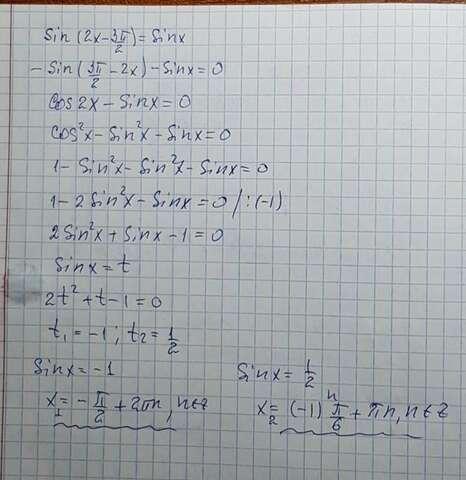 Sin (2x - 3π/2) = Sinx
- Sin (3π/2 - 2x) - Sinx = 0
Cos 2x - Sinx = 0
Cos²x - Sin²x - Sinx = 0
1 - Sin²x - Sin²x - Sinx = 0
1 - 2 Sin²x - Sinx = 0 / : (-1)
2 Sin²x + Sinx - 1 = 0
Sinx = t
2t² + t - 1 = 0
t₁ = -1 ; t₂ = 1/2
Sinx = -1
x₁ = - π/2 + 2πn, n∈Z
Sinx = 1/2
x₂ = (-1)ⁿ π/6 + πn, n∈Z